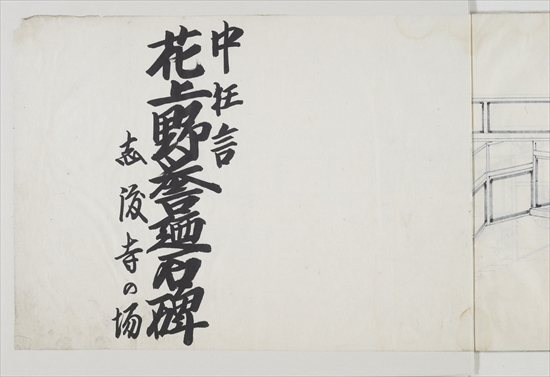 中狂言
花上野誉迺石碑
志渡寺の場